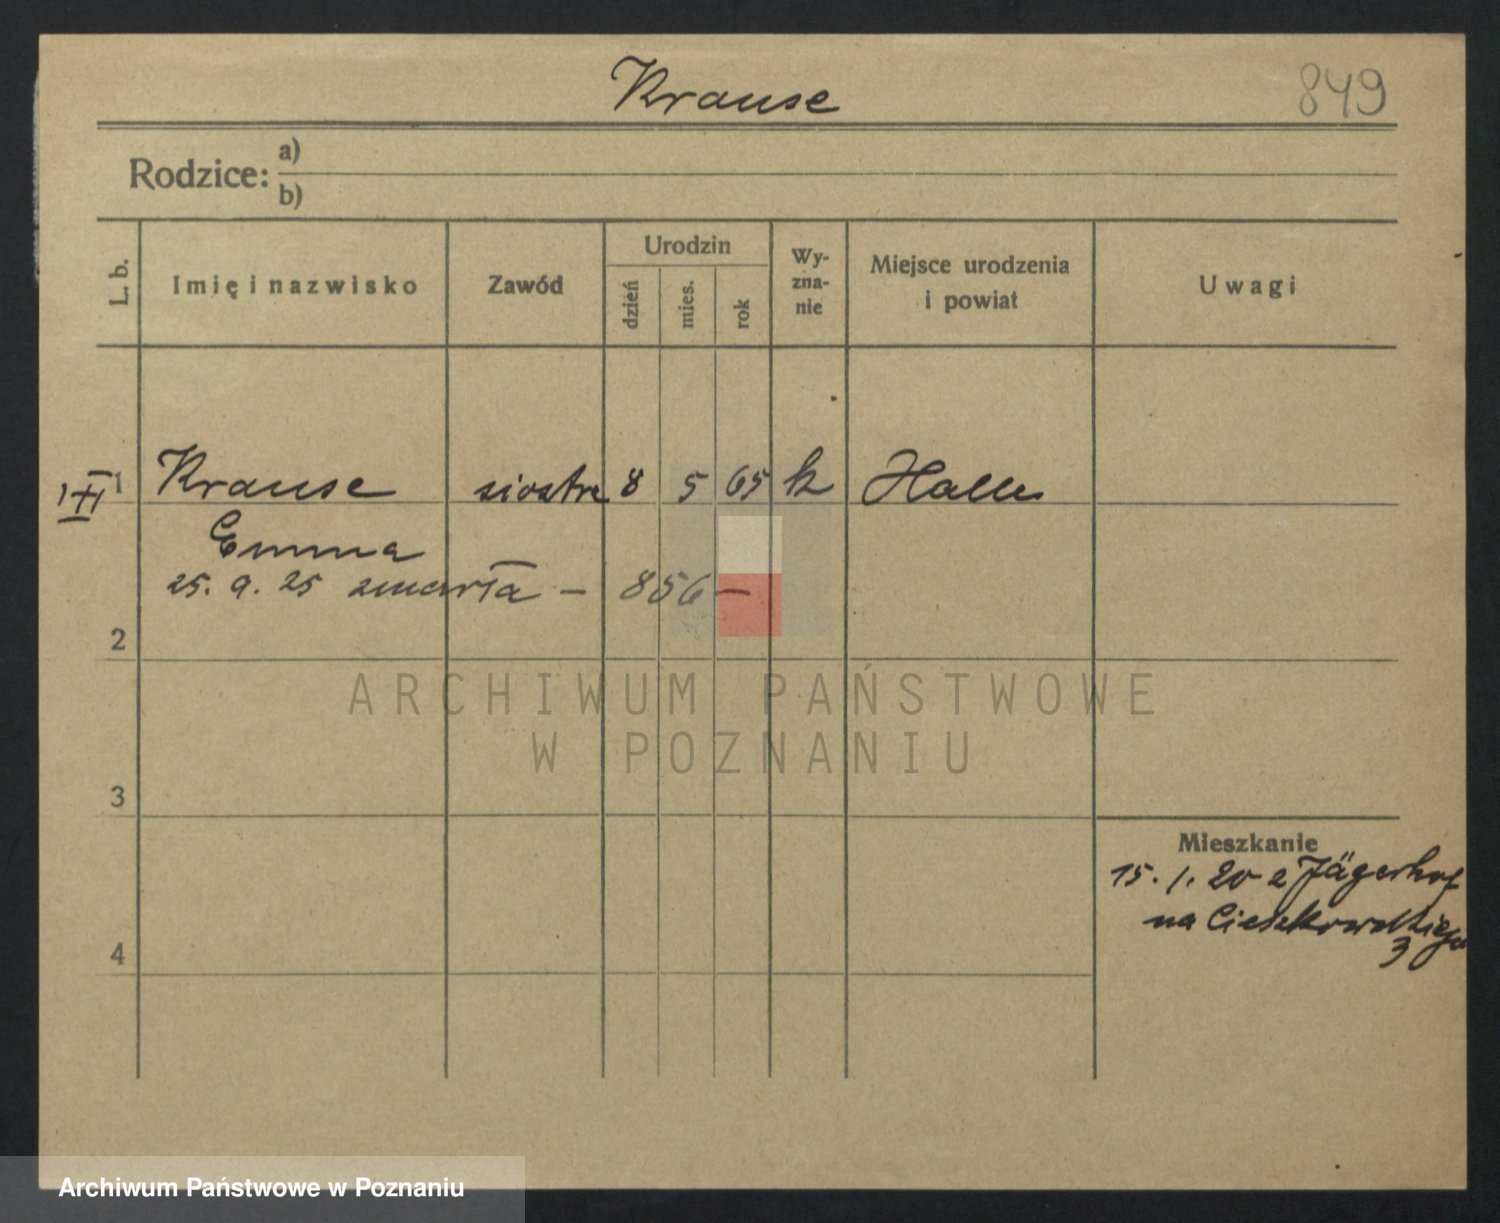 Krause
849
Rodzice: a)
b)
L. b.
Imię i nazwisko
Zawód
Urodzin
dzień
mies.
rok
Wy-
zna-
nie
Miejsce urodzenia
i powiat
Uwagi
1 Krause siostra 8 5 65 k Halle
Emma
25. 9. 25 zmarła – 856 –
2
3
4
Mieszkanie
15. 1. 20 z Jägerhof
na Cieszkowskiego
3
ARCHIWUM PAŃSTWOWE
W POZNANIU
Archiwum Państwowe w Poznaniu